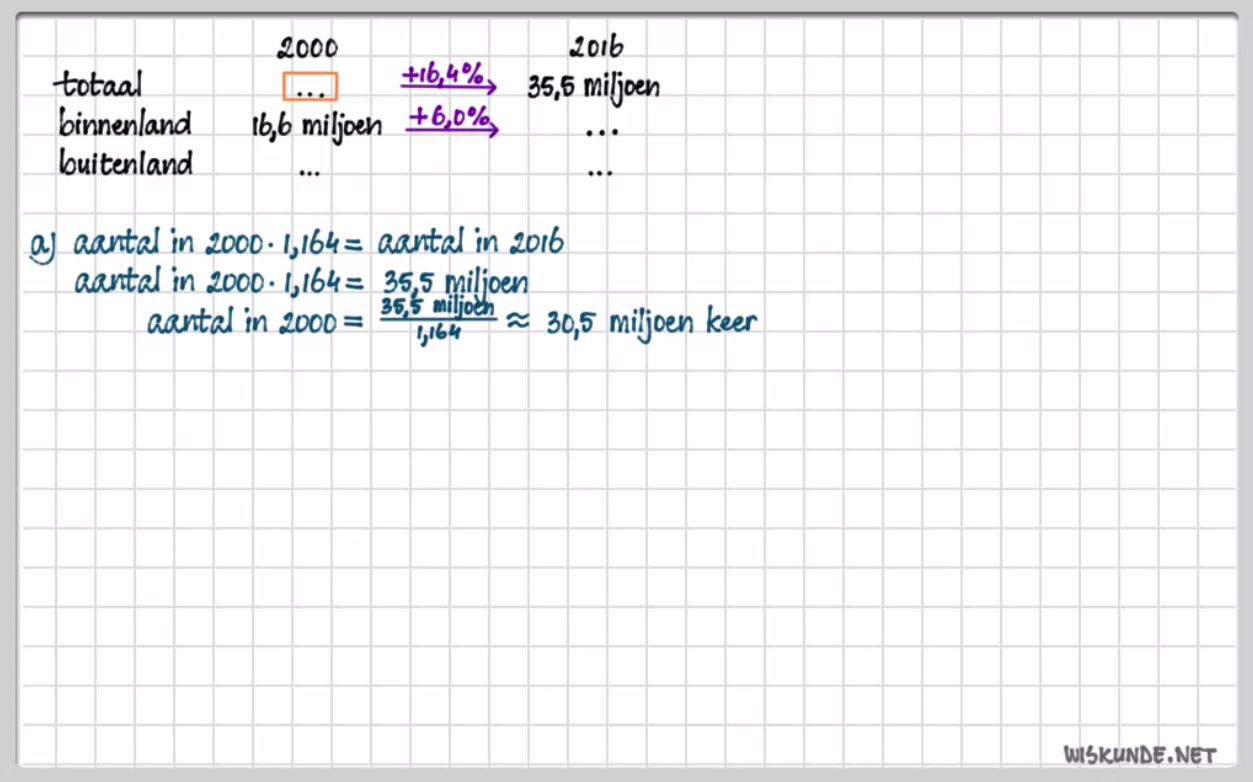 2000 2016
totaal ... +16,4% 35,5 miljoen
binnenland 16,6 miljoen +6,0% ...
buitenland ... ...
a) aantal in 2000 · 1,164 = aantal in 2016
aantal in 2000 · 1,164 = 35,5 miljoen
aantal in 2000 = 35,5 miljoen / 1,164 ≈ 30,5 miljoen keer
WISKUNDE.NET